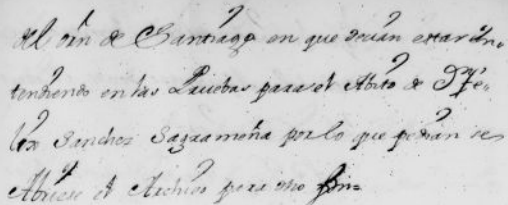 del orn̄ de Santiago en que decian estar en-
tendiendo en las Pruebas para el Abito de Dn. Fe-
lix Sanchez Sazrameña por lo que pedian se
Abriese el Archivo para dho fin=